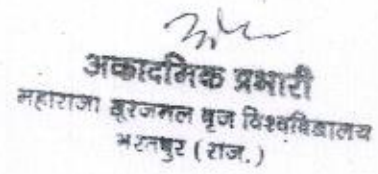 अकादमिक प्रभारी
महाराजा सूरजमल बृज विश्वविद्यालय
भरतपुर ( राज. )